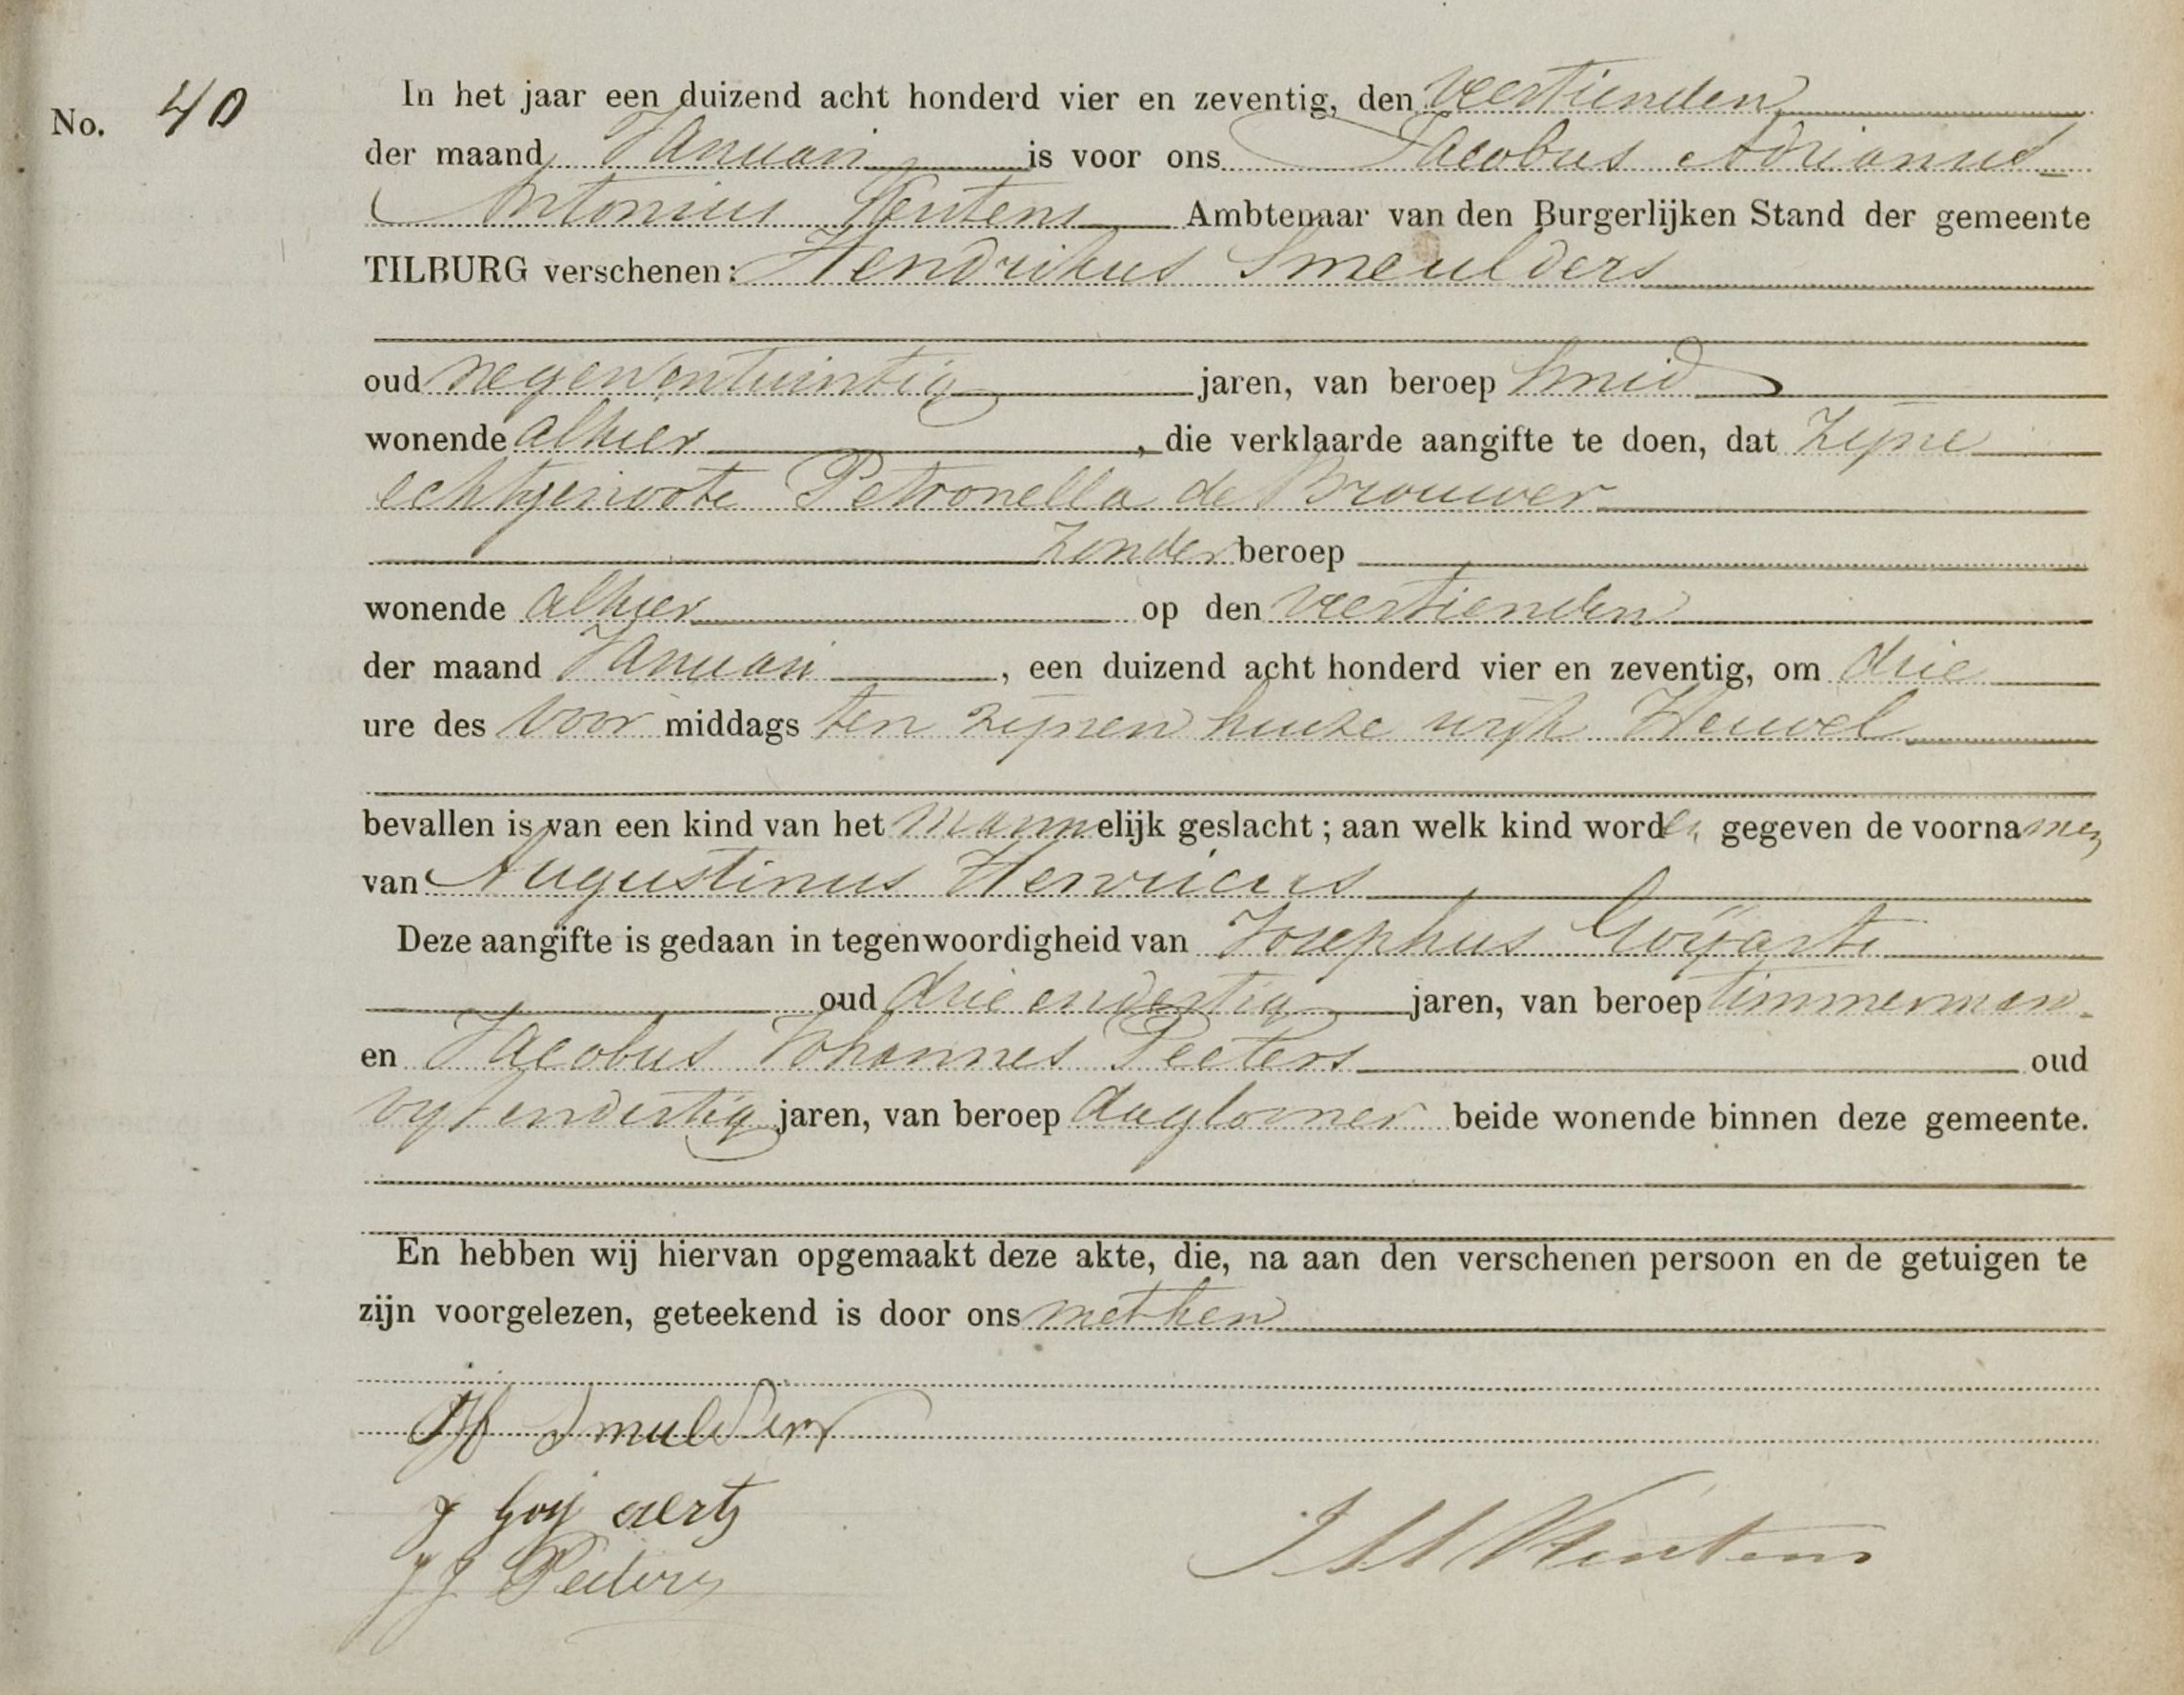 No. 40
In het jaar een duizend acht honderd vier en zeventig, den veertienden
der maand Januari is voor ons Jacobus Adrianus
Antonius Kertens Ambtenaar van den Burgerlijken Stand der gemeente
TILBURG verschenen: Hendrikus Smeulders
oud negenentwintig jaren, van beroep Smid
wonende alhier, die verklaarde aangifte te doen, dat zijne
echtgenoote Petronella de Brouwer
zonder beroep
wonende alhier op den veertienden
der maand Januari, een duizend acht honderd vier en zeventig, om drie
ure des voor middags ten zijnen huize wijk Heuvel
bevallen is van een kind van het mannelijk geslacht; aan welk kind worden gegeven de voornamen
van Augustinus Henricus
Deze aangifte is gedaan in tegenwoordigheid van Josephus Goijarts
oud drie endertig jaren, van beroep timmerman
en Jacobus Johannes Peeters oud
vijf endertig jaren, van beroep daglooner beide wonende binnen deze gemeente.
En hebben wij hiervan opgemaakt deze akte, die, na aan den verschenen persoon en de getuigen te
zijn voorgelezen, geteekend is door ons met hen
H Smulders
J Goijaerts
JJ Peeters